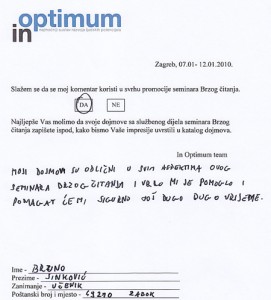 in optimum
Zagreb, 07.01- 12.01.2010.
Slažem se da se moj komentar koristi u svrhu promocije seminara Brzog čitanja.
DA NE
Najljepše Vas molimo da svoje dojmove sa službenog dijela seminara Brzog
čitanja zapišete ispod, kako bismo Vaše impresije uvrstili u katalog dojmova.
In Optimum team
MOJI DOJMOVI SU ODLIČNI U SVIM ASPEKTIMA OVOG
SEMINARA BRZOG ČITANJA I VRLO MI JE POMOGLO I
POMAGAT ĆE MI SIGURNO JOŠ DUGO DUGO VRIJEME.
Ime -
Prezime - SINKOVIĆ
Zanimanje - UČENIK
Poštanski broj i mjesto - 49210 ZABOK